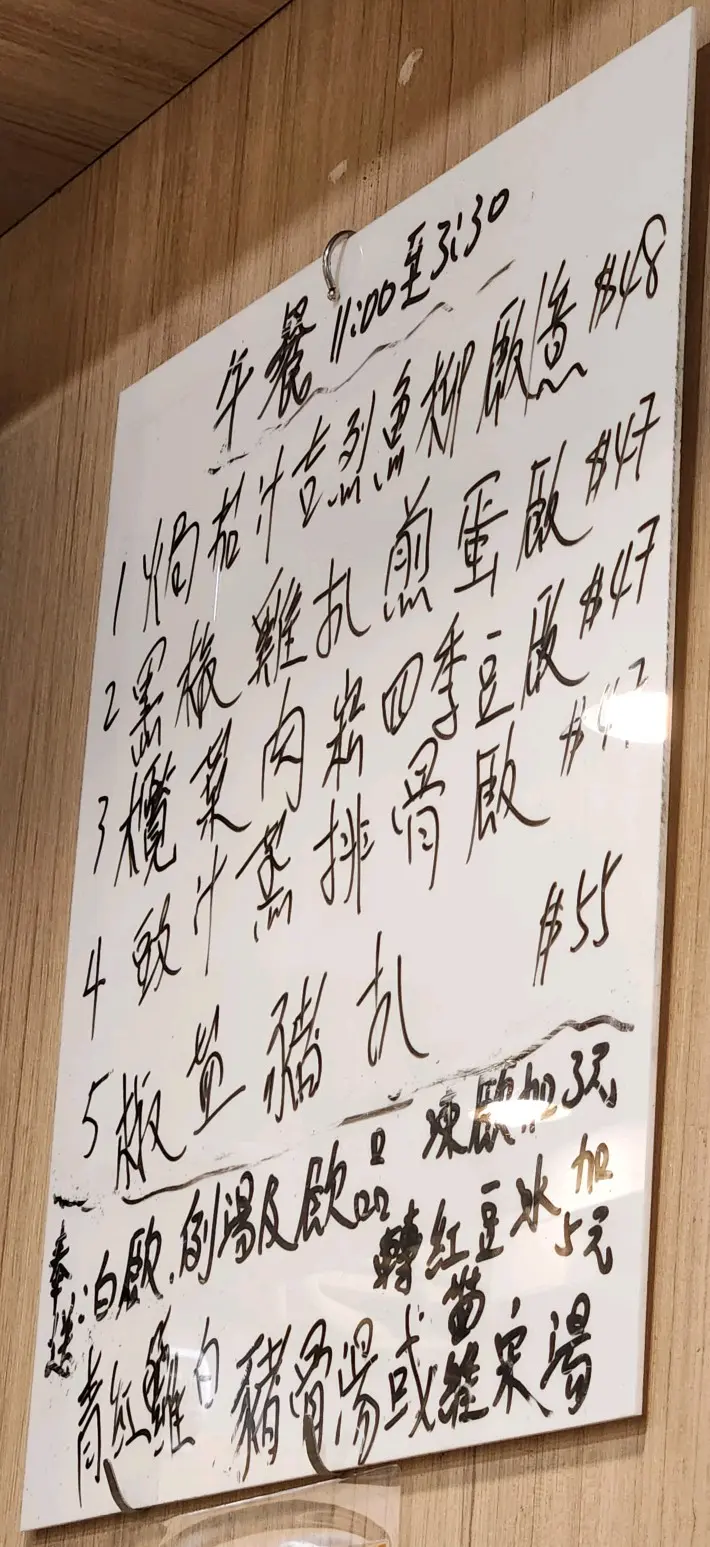 午餐 11:00至3:30
1 焗茄汁吉列魚柳飯/意 $48
2 黑椒雞扒煎蛋飯 $47
3 欖菜肉崧四季豆飯 $47
4 豉汁蒸排骨飯 $47
5 椒盐豬扒 $55
奉送:白飯.例湯及飲品 凍飲加3元
轉紅豆冰加5元
青紅 豬骨湯或 宋湯